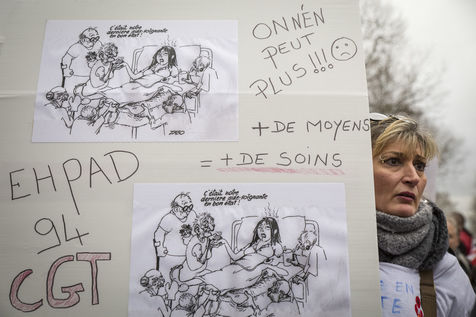 C'était notre
dernière aide-soignante
en bon état!
ON N'EN
PEUT
PLUS!!!
+ DE MOYENS
= + DE SOINS
EHPAD
94
CGT
C'était notre
dernière aide-soignante
en bon état!
EN